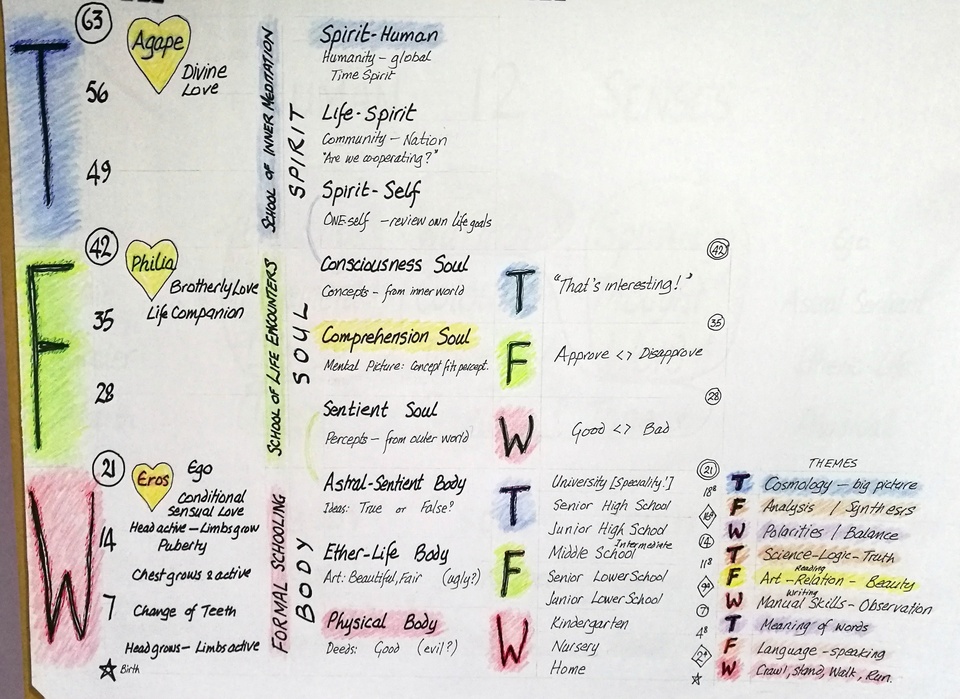 63
T
Agape
Divine
Love
56
49
SCHOOL OF INNER MEDITATION
SPIRIT
Spirit-Human
Humanity - global
Time Spirit
Life-Spirit
Community - Nation
"Are we co-operating?"
Spirit-Self
ONE-self - review own life goals
42
F
Philia
Brotherly Love
Life Companion
35
28
SCHOOL OF LIFE ENCOUNTERS
SOUL
Consciousness Soul
Concepts - from inner world
Comprehension Soul
Mental Picture: Concept fits percept.
Sentient Soul
Percepts - from outer world
42
T
"That's interesting!"
35
F
Approve <> Disapprove
28
W
Good <> Bad
21
W
Eros
Ego
Conditional
sensual Love
Head active - Limbs grow
Puberty
14
Chest grows & active
7
Change of Teeth
Head grows - Limbs active
Birth
FORMAL SCHOOLING
BODY
Astral-Sentient Body
Ideas: True or False?
Ether-Life Body
Art: Beautiful, Fair (ugly?)
Physical Body
Deeds: Good (evil?)
T
University [Speciality!]
Senior High School
Junior High School
F
Intermediate
Middle School
Senior Lower School
Junior Lower School
W
Kindergarten
Nursery
Home
THEMES
21
T Cosmology - big picture
18⁸
F Analysis / Synthesis
W Polarities / Balance
14
T Science-Logic-Truth
11⁸
Reading
F Art-Relation - Beauty
Writing
W Manual Skills - Observation
7
T Meaning of words
4⁸
F Language-speaking
2⁴
W Crawl, Stand, Walk, Run.